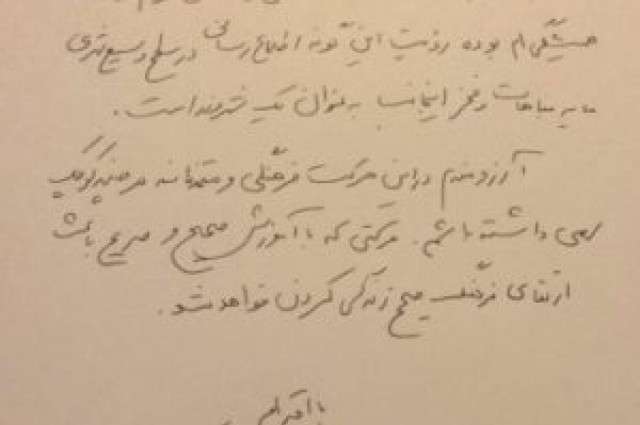 همیشگی‌ام بوده رؤیت این گونه اطلاع رسانی در سطح وسیع‌تری
مایه مباهات و فخر اینجانب به عنوان یک شهروند است.
آرزومندم در این حرکت فرهنگی و متمدنانه هر چند کوچک
سهمی داشته باشم. حرکتی که با آموزش صحیح و صریح باعث
ارتقای فرهنگ صحیح زندگی کردن خواهد شد.
با احترام